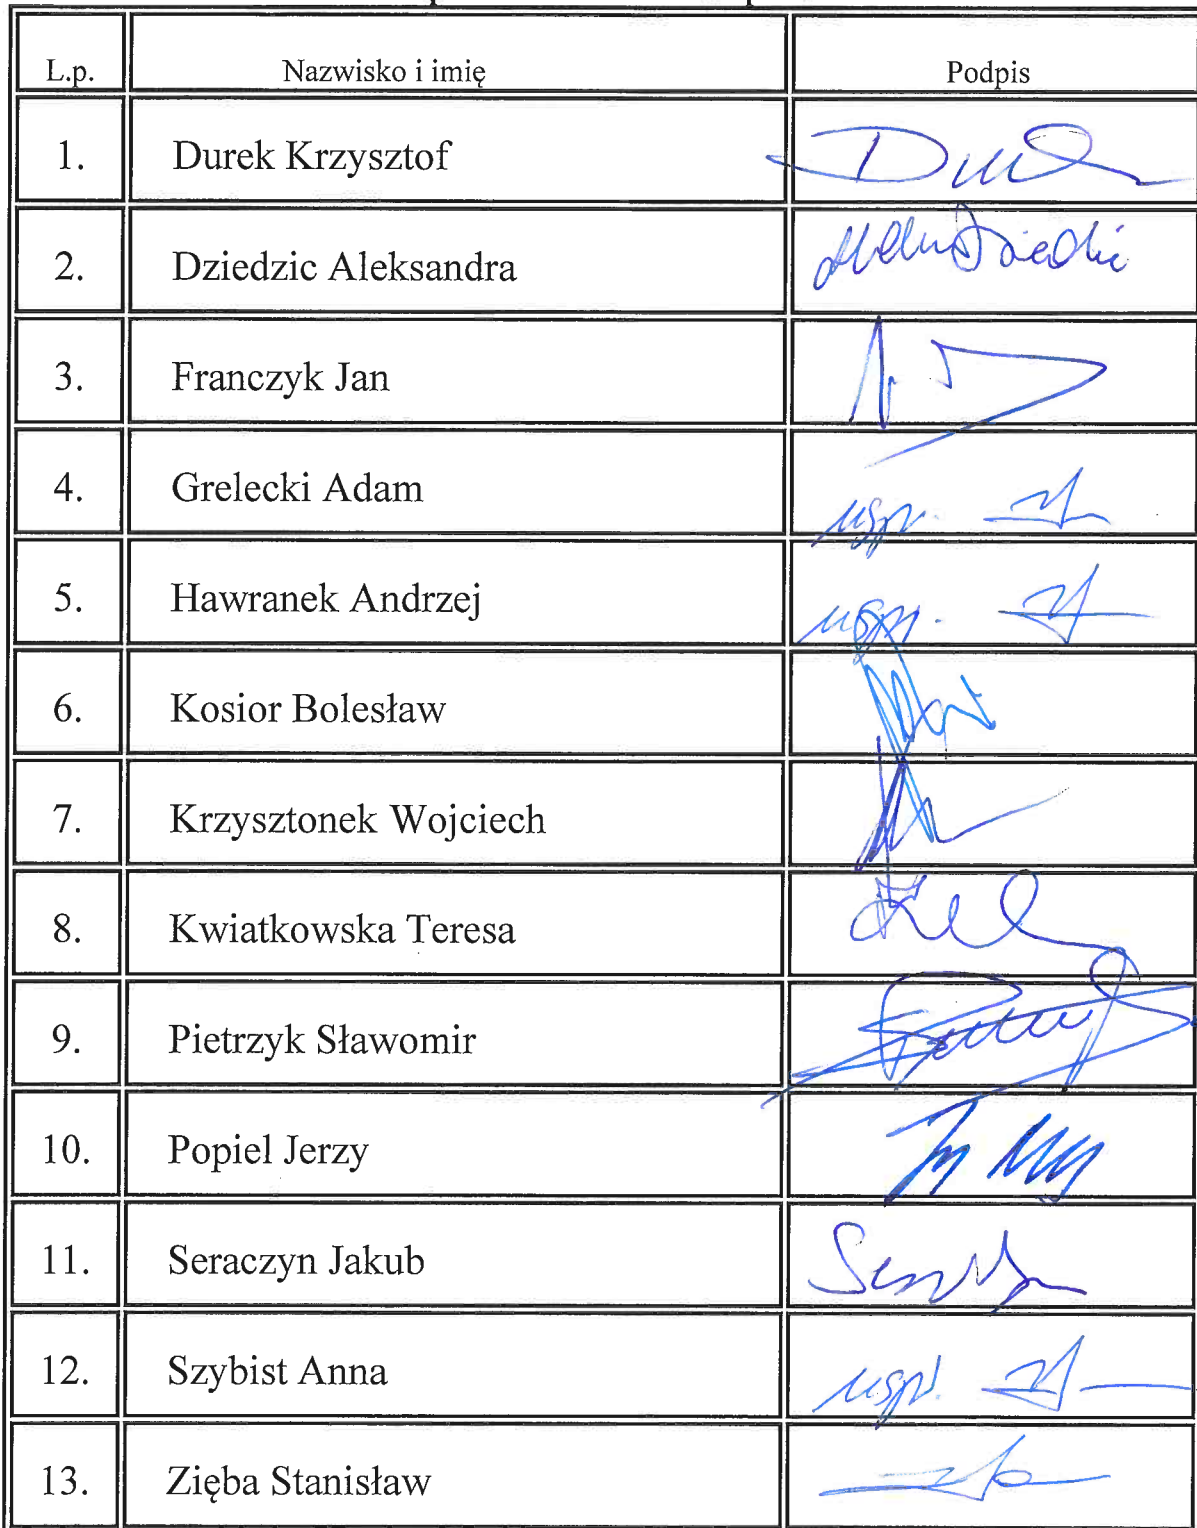 L.p. Nazwisko i imię Podpis
1. Durek Krzysztof
2. Dziedzic Aleksandra
3. Franczyk Jan
4. Grelecki Adam uspr.
5. Hawranek Andrzej uspr.
6. Kosior Bolesław
7. Krzysztonek Wojciech
8. Kwiatkowska Teresa
9. Pietrzyk Sławomir
10. Popiel Jerzy
11. Seraczyn Jakub
12. Szybist Anna uspr.
13. Zięba Stanisław